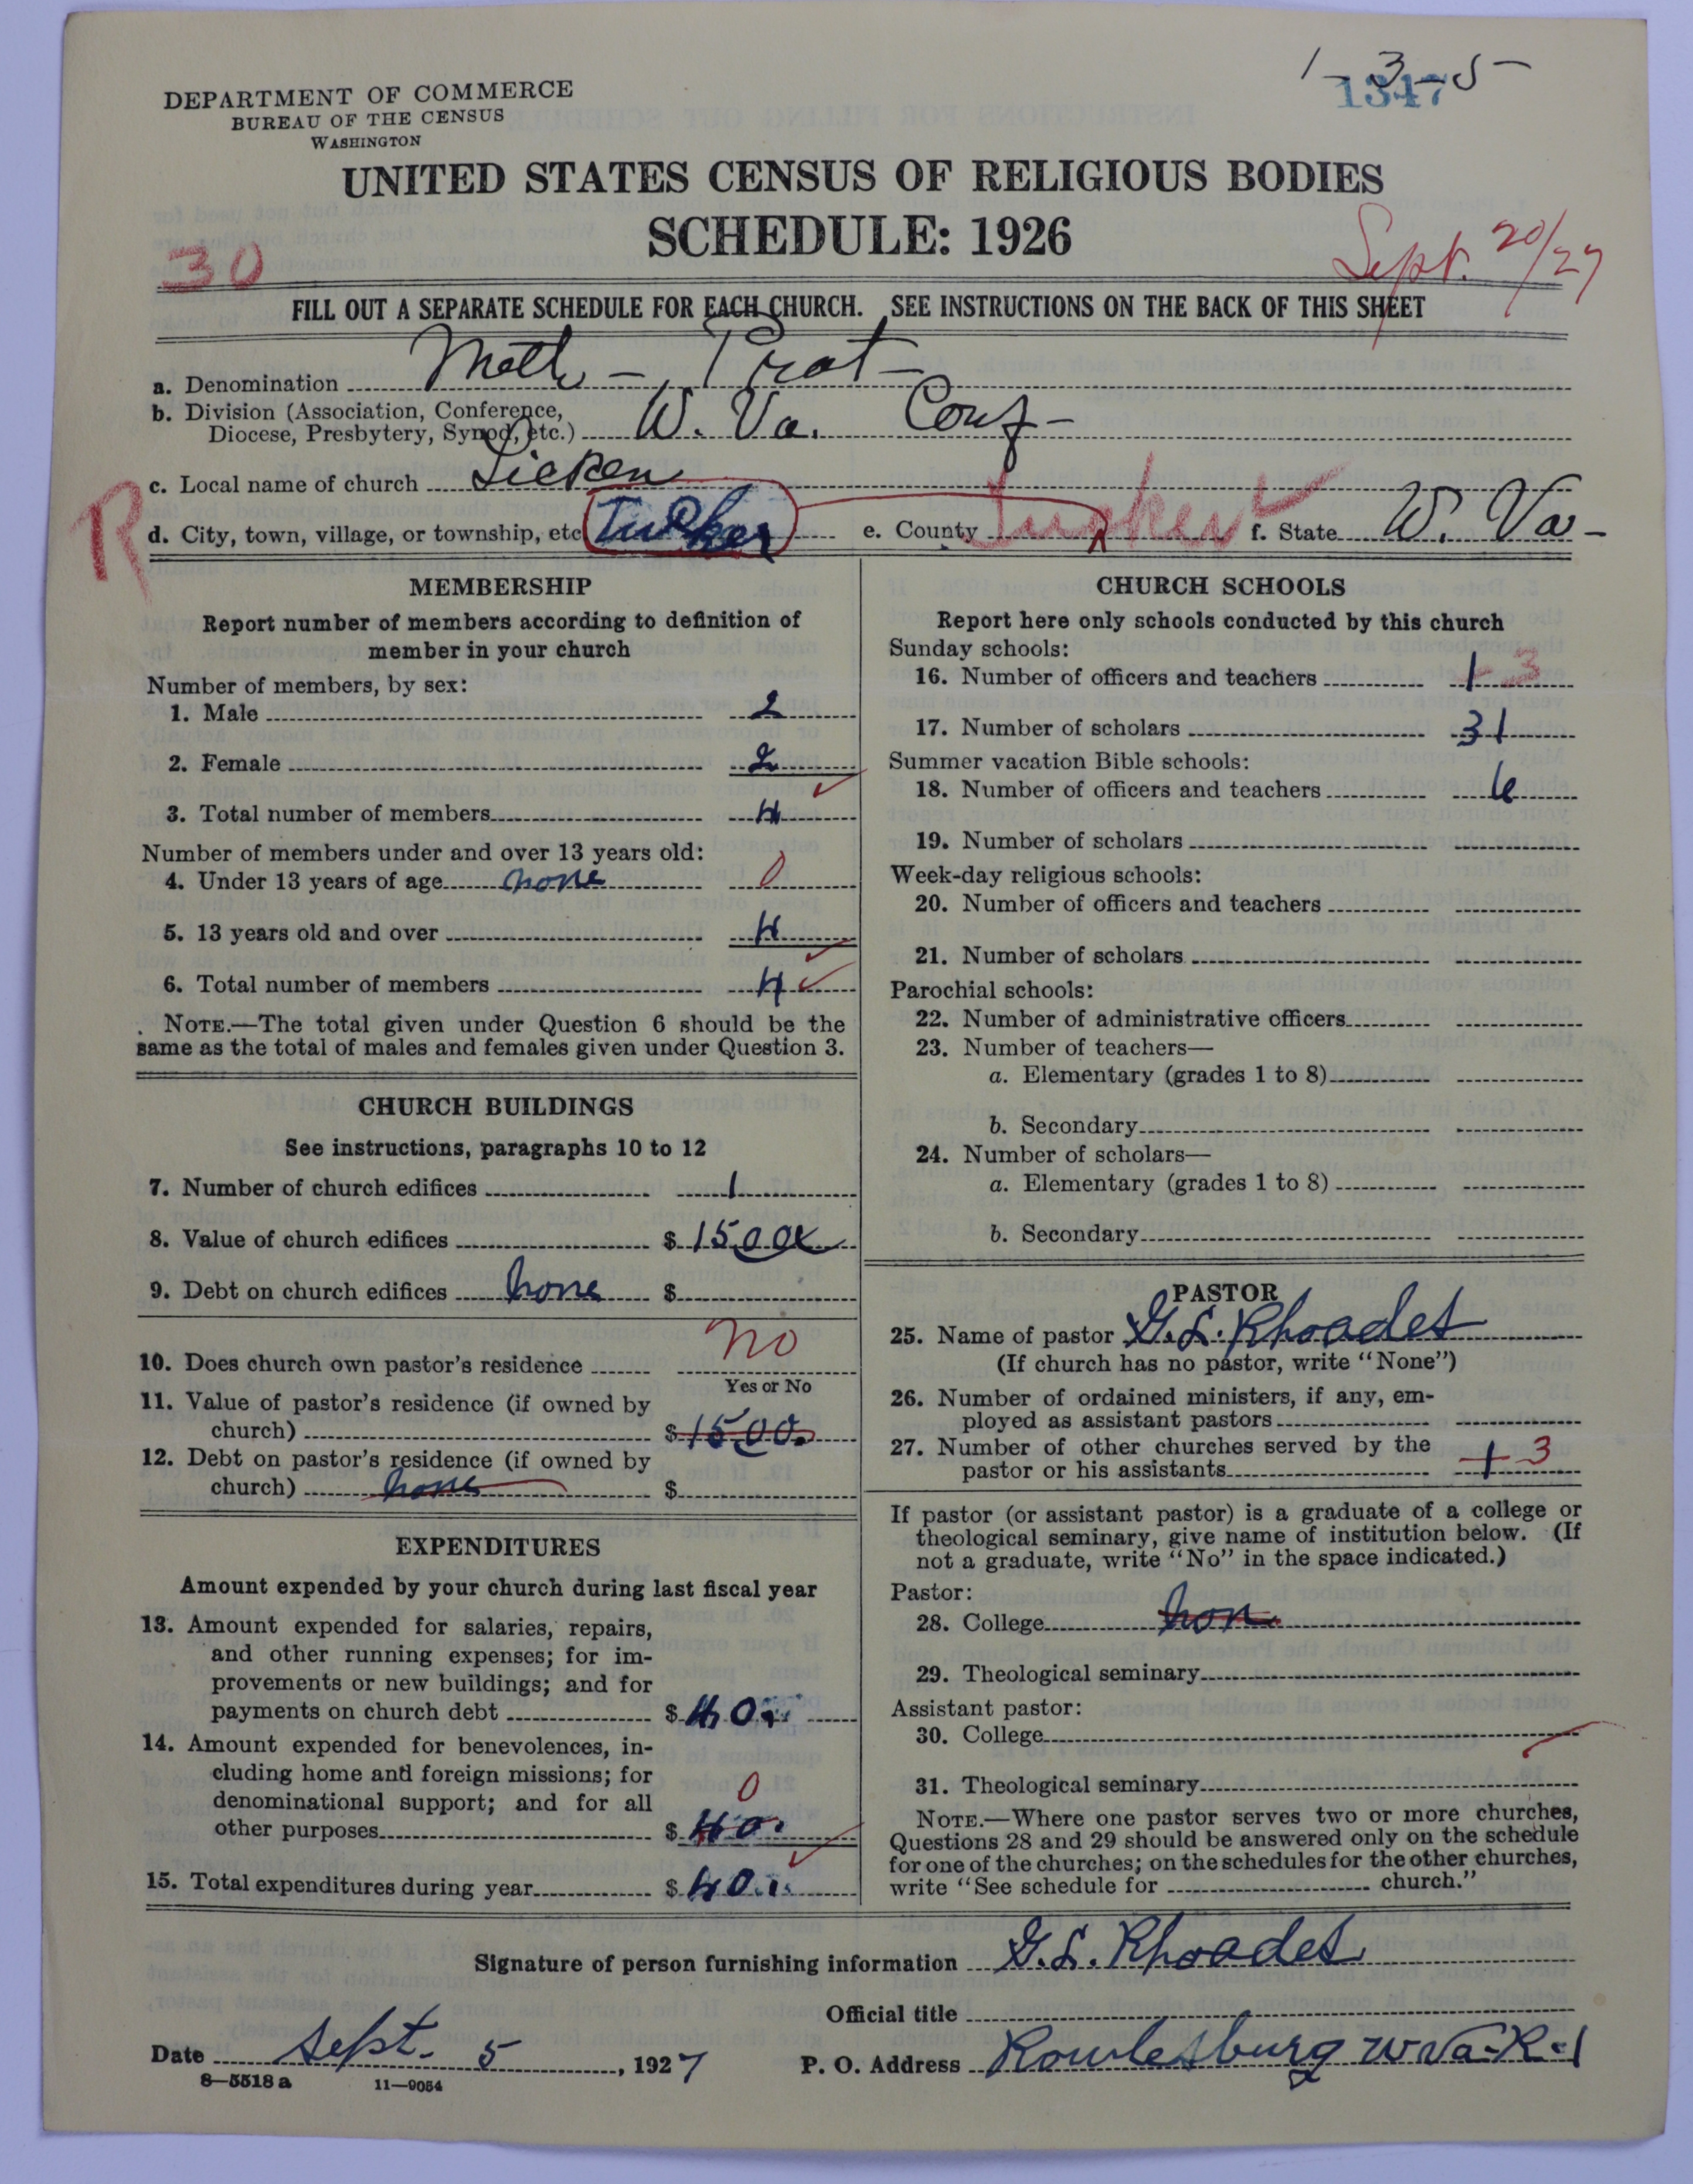 1-3-5-
1347
DEPARTMENT OF COMMERCE
BUREAU OF THE CENSUS
WASHINGTON
UNITED STATES CENSUS OF RELIGIOUS BODIES
SCHEDULE: 1926
30
Sept. 20/27
FILL OUT A SEPARATE SCHEDULE FOR EACH CHURCH. SEE INSTRUCTIONS ON THE BACK OF THIS SHEET
a. Denomination Meth - Prot -
b. Division (Association, Conference,
Diocese, Presbytery, Synod, etc.) W. Va. Conf -
c. Local name of church
R
d. City, town, village, or township, etc Tucker e. County Tucker f. State W. Va -
MEMBERSHIP
Report number of members according to definition of
member in your church
Number of members, by sex:
1. Male 2
2. Female 2
3. Total number of members 4
Number of members under and over 13 years old:
4. Under 13 years of age none 0
5. 13 years old and over 4
6. Total number of members 4
NOTE.—The total given under Question 6 should be the
same as the total of males and females given under Question 3.
CHURCH BUILDINGS
See instructions, paragraphs 10 to 12
7. Number of church edifices 1
8. Value of church edifices $ 1500
9. Debt on church edifices none $
10. Does church own pastor's residence no
Yes or No
11. Value of pastor's residence (if owned by
church) $ 1500.
12. Debt on pastor's residence (if owned by
church) none $
EXPENDITURES
Amount expended by your church during last fiscal year
13. Amount expended for salaries, repairs,
and other running expenses; for im-
provements or new buildings; and for
payments on church debt $ 40.
14. Amount expended for benevolences, in-
cluding home and foreign missions; for
denominational support; and for all 0
other purposes $ 40.
15. Total expenditures during year $ 40.
CHURCH SCHOOLS
Report here only schools conducted by this church
Sunday schools:
16. Number of officers and teachers 1 3
17. Number of scholars 31
Summer vacation Bible schools:
18. Number of officers and teachers 6
19. Number of scholars
Week-day religious schools:
20. Number of officers and teachers
21. Number of scholars
Parochial schools:
22. Number of administrative officers
23. Number of teachers—
a. Elementary (grades 1 to 8)
b. Secondary
24. Number of scholars—
a. Elementary (grades 1 to 8)
b. Secondary
PASTOR
25. Name of pastor G. L. Rhoades
(If church has no pastor, write "None")
26. Number of ordained ministers, if any, em-
ployed as assistant pastors
27. Number of other churches served by the
pastor or his assistants 1 3
If pastor (or assistant pastor) is a graduate of a college or
theological seminary, give name of institution below. (If
not a graduate, write "No" in the space indicated.)
Pastor:
28. College non
29. Theological seminary
Assistant pastor:
30. College
31. Theological seminary
NOTE.—Where one pastor serves two or more churches,
Questions 28 and 29 should be answered only on the schedule
for one of the churches; on the schedules for the other churches,
write "See schedule for church."
Signature of person furnishing information G. L. Rhoades
Official title
Date Sept. 5, 1927 P. O. Address Rowlesburg W Va. R. 1
8-5518 a 11-9054